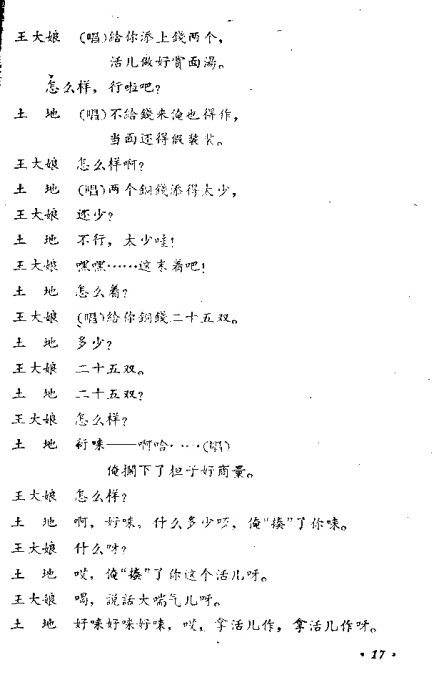 王大娘 (唱)给你添上錢两个,
活儿做好賞面湯。
怎么样, 行啦吧?
土 地 (唱)不给錢来俺也得作,
当面还得假装长。
王大娘 怎么样啊?
土 地 (唱)两个銅錢添得太少,
王大娘 还少?
土 地 不行, 太少哇!
王大娘 嘿嘿……这来着吧!
土 地 怎么着?
王大娘 (唱)给你銅錢二十五双。
土 地 多少?
王大娘 二十五双。
土 地 二十五双?
王大娘 怎么样?
土 地 好唻——啊哈……(唱)
俺擱下了担子好商量。
王大娘 怎么样?
土 地 啊, 好唻, 什么多少吓, 俺“揍”了你唻。
王大娘 什么呀?
土 地 哎, 俺“揍”了你这个活儿呀。
王大娘 喝, 說話大喘气儿呀。
土 地 好唻好唻好唻, 哎, 拿活儿作, 拿活儿作呀。
• 17 •